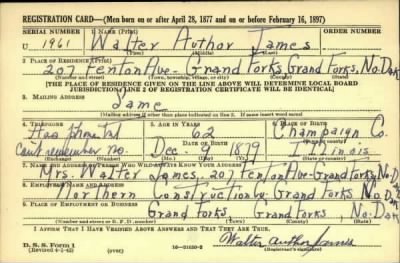 REGISTRATION CARD—(Men born on or after April 28, 1877 and on or before February 16, 1897)
SERIAL NUMBER 1. NAME (Print)
U 1961 Walter Author James
(First) (Middle) (Last)
2. PLACE OF RESIDENCE (Print)
207 Fenton Ave- Grand Forks, Grand Forks, No. Dak
(Number and street) (Town, township, village, or city) (County) (State)
[THE PLACE OF RESIDENCE GIVEN ON THE LINE ABOVE WILL DETERMINE LOCAL BOARD
JURISDICTION; LINE 2 OF REGISTRATION CERTIFICATE WILL BE IDENTICAL]
3. MAILING ADDRESS
Same
(Mailing address if other than place indicated on line 2. If same insert word same)
4. TELEPHONE 5. AGE IN YEARS 6. PLACE OF BIRTH
Has phone but 62 Champaign Co.
DATE OF BIRTH (Town or county)
can't remember no. Dec. 9 1879 Illinois
(Exchange) (Number) (Mo.) (Day) (Yr.) (State or country)
7. NAME AND ADDRESS OF PERSON WHO WILL ALWAYS KNOW YOUR ADDRESS
Mrs. Walter James, 207 Fenton Ave-Grand Forks, No. Dak
8. EMPLOYER'S NAME AND ADDRESS
Northern Construction Grand Forks, No. Dak
9. PLACE OF EMPLOYMENT OR BUSINESS
Grand Forks, Grand Forks, No. Dak
(Number and street or R. F. D. number) (Town) (County) (State)
I AFFIRM THAT I HAVE VERIFIED ABOVE ANSWERS AND THAT THEY ARE TRUE.
D. S. S. Form 1
(Revised 4-1-42) (over) 16—21630-2 Walter Author James
(Registrant's signature)